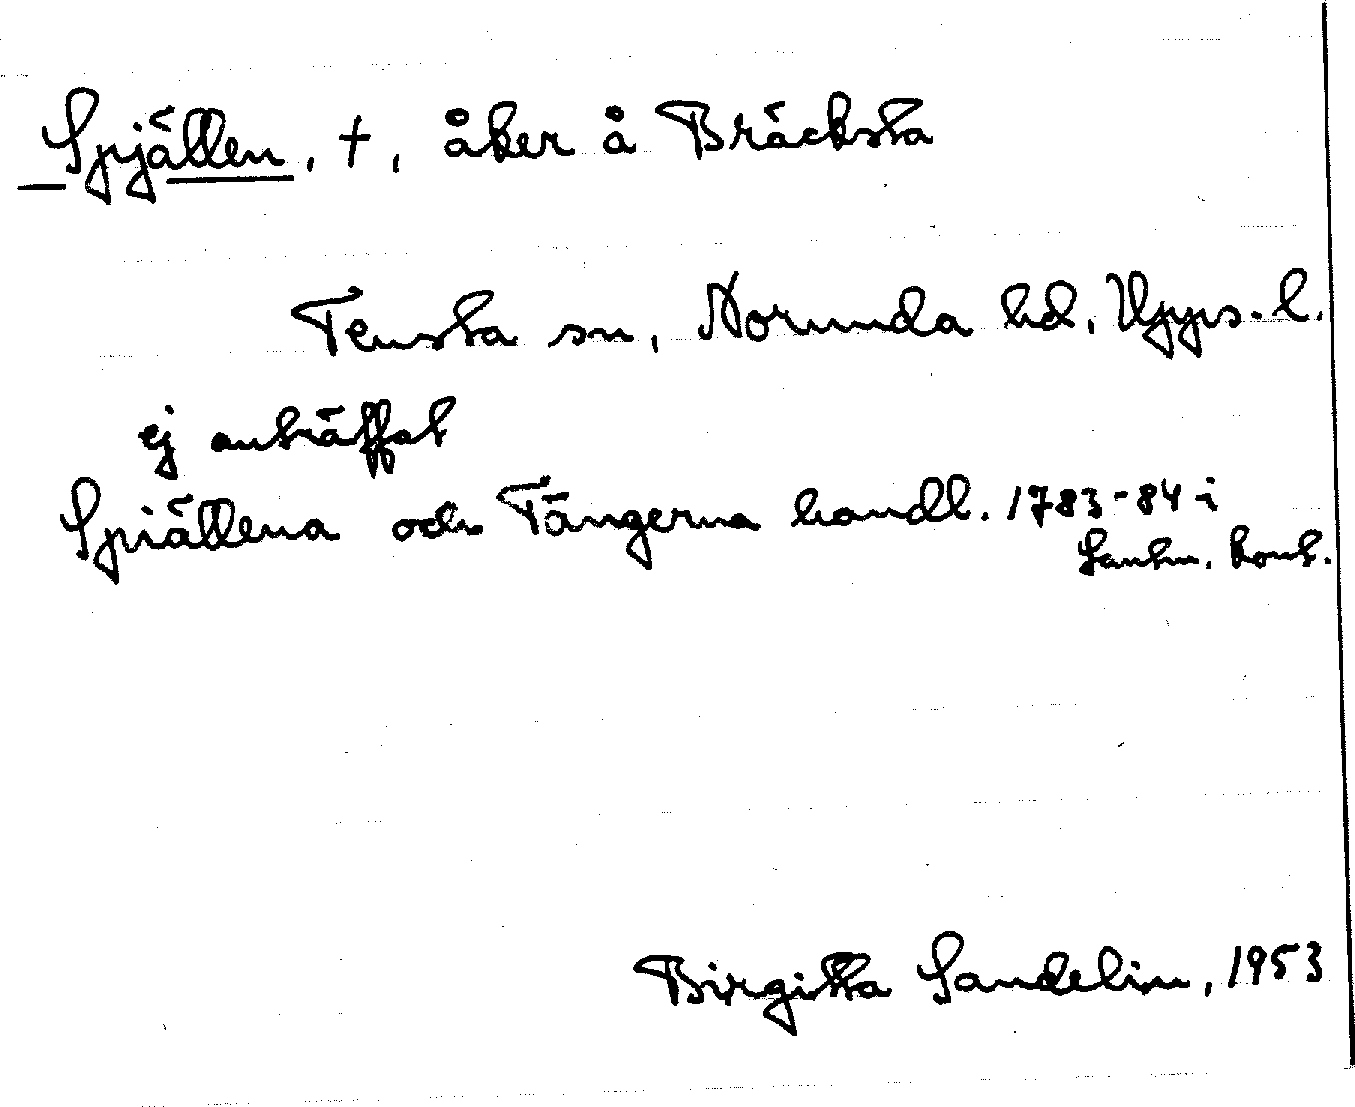 Spjällen, †, åker å Bräcksta
Tensta sn, Norunda hd, Upps. l.
ej anträffat
Spiällena och Tängerna handl. 1783-84 i
Lantm. kont.
Birgitta Sandelin, 1953